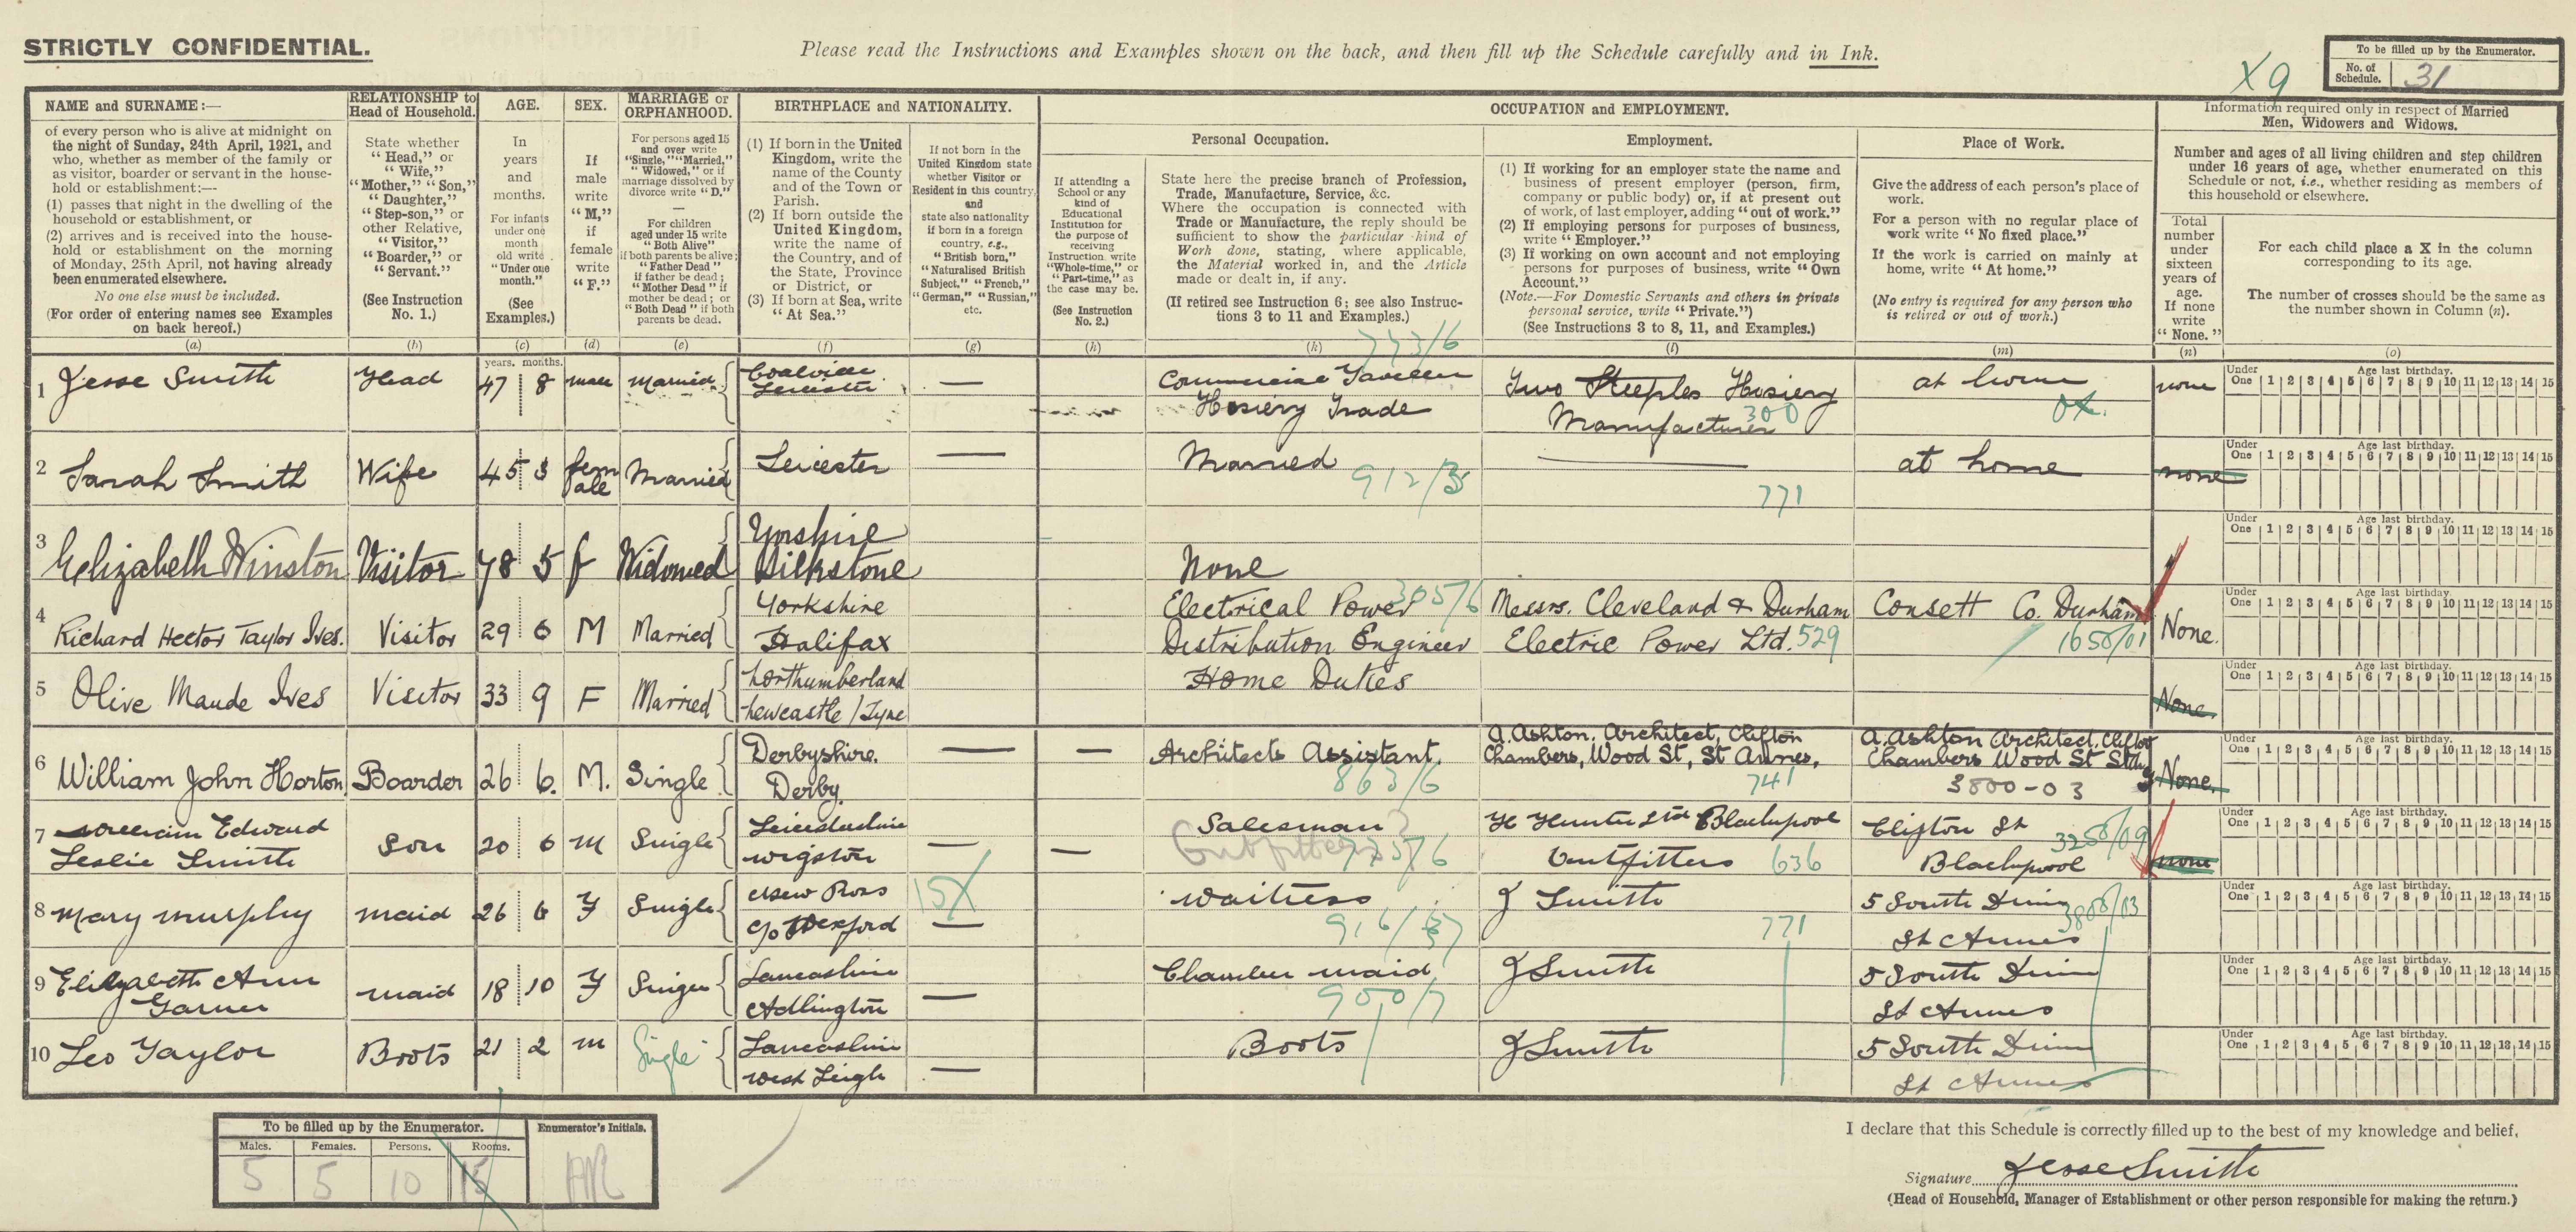 STRICTLY CONFIDENTIAL.
Please read the Instructions and Examples shown on the back, and then fill up the Schedule carefully and in Ink.
X9
To be filled up by the Enumerator.
No. of Schedule. 31
NAME and SURNAME:—
of every person who is alive at midnight on
the night of Sunday, 24th April, 1921, and
who, whether as member of the family or
as visitor, boarder or servant in the house-
hold or establishment:—
(1) passes that night in the dwelling of the
household or establishment, or
(2) arrives and is received into the house-
hold or establishment on the morning
of Monday, 25th April, not having already
been enumerated elsewhere.
No one else must be included.
(For order of entering names see Examples
on back hereof.)
(a)
RELATIONSHIP to
Head of Household.
State whether
"Head," or
"Wife,"
"Mother," "Son,"
"Daughter,"
"Step-son," or
other Relative,
"Visitor,"
"Boarder," or
"Servant."
(See Instruction
No. 1.)
(b)
AGE.
In
years
and
months.
For infants
under one
month
old write
"Under one
month."
(See
Examples.)
(c)
SEX.
If
male
write
"M,"
if
female
write
"F."
(d)
MARRIAGE or
ORPHANHOOD.
For persons aged 15
and over write
"Single," "Married,"
"Widowed," or if
marriage dissolved by
divorce write "D."
For children
aged under 15 write
"Both Alive"
if both parents be alive;
"Father Dead"
if father be dead;
"Mother Dead" if
mother be dead; or
"Both Dead" if both
parents be dead.
(e)
BIRTHPLACE and NATIONALITY.
(1) If born in the United
Kingdom, write the
name of the County
and of the Town or
Parish.
(2) If born outside the
United Kingdom,
write the name of
the Country, and of
the State, Province
or District, or
(3) If born at Sea, write
"At Sea."
(f)
If not born in the
United Kingdom state
whether Visitor or
Resident in this country,
and
state also nationality
if born in a foreign
country, e.g.,
"British born,"
"Naturalised British
Subject," "French,"
"German," "Russian,"
etc.
(g)
OCCUPATION and EMPLOYMENT.
If attending a
School or any
kind of
Educational
Institution for
the purpose of
receiving
Instruction write
"Whole-time," or
"Part-time," as
the case may be.
(See Instruction
No. 2.)
(h)
Personal Occupation.
State here the precise branch of Profession,
Trade, Manufacture, Service, &c.
Where the occupation is connected with
Trade or Manufacture, the reply should be
sufficient to show the particular kind of
Work done, stating, where applicable,
the Material worked in, and the Article
made or dealt in, if any.
(If retired see Instruction 6; see also Instruc-
tions 3 to 11 and Examples.)
(k)
Employment.
(1) If working for an employer state the name and
business of present employer (person, firm,
company or public body) or, if at present out
of work, of last employer, adding "out of work."
(2) If employing persons for purposes of business,
write "Employer."
(3) If working on own account and not employing
persons for purposes of business, write "Own
Account."
(Note.—For Domestic Servants and others in private
personal service, write "Private.")
(See Instructions 3 to 8, 11, and Examples.)
(l)
Place of Work.
Give the address of each person's place of
work.
For a person with no regular place of
work write "No fixed place."
If the work is carried on mainly at
home, write "At home."
(No entry is required for any person who
is retired or out of work.)
(m)
Information required only in respect of Married
Men, Widowers and Widows.
Number and ages of all living children and step children
under 16 years of age, whether enumerated on this
Schedule or not, i.e., whether residing as members of
this household or elsewhere.
Total
number
under
sixteen
years of
age.
If none
write
"None."
(n)
For each child place a X in the column
corresponding to its age.
The number of crosses should be the same as
the number shown in Column (n).
(o)
years. months.
1 Jesse Smith Head 47 8 male Married Coalville Leicester — Commercial Traveller Hosiery Trade 773/6 Two Steeples Hosiery Manufacturer 300 at home OX. none
Under One Age last birthday. 1 2 3 4 5 6 7 8 9 10 11 12 13 14 15
2 Sarah Smith Wife 45 3 fem ale Married Leicester — Married 912/3 771 at home none
Under One Age last birthday. 1 2 3 4 5 6 7 8 9 10 11 12 13 14 15
3 Elizabeth Winston Visitor 78 5 f Widowed Yorshire Silkstone None
Under One Age last birthday. 1 2 3 4 5 6 7 8 9 10 11 12 13 14 15
4 Richard Hector Taylor Ives. Visitor 29 6 M Married Yorkshire Halifax Electrical Power Distribution Engineer 305/6 Messrs. Cleveland & Durham Electric Power Ltd. 529 Consett Co. Durham 1650/01 None.
Under One Age last birthday. 1 2 3 4 5 6 7 8 9 10 11 12 13 14 15
5 Olive Maude Ives Visitor 33 9 F Married Northumberland Newcastle/Tyne Home Duties None.
Under One Age last birthday. 1 2 3 4 5 6 7 8 9 10 11 12 13 14 15
6 William John Horton Boarder 26 6. M. Single Derbyshire. Derby. — — Architects Assistant. 863/6 A. Ashton. Architect, Clifton Chambers, Wood St, St Annes, 741 A. Ashton Architect, Clifton Chambers Wood St 3800-03 None.
Under One Age last birthday. 1 2 3 4 5 6 7 8 9 10 11 12 13 14 15
7 William Edward Leslie Smith Son 20 6 M Single Leicestershire Wigston — — Salesman Outfitters 775/6 H Hunter Ltd Blackpool Outfitters 636 Clifton St Blackpool 3250/09 none
Under One Age last birthday. 1 2 3 4 5 6 7 8 9 10 11 12 13 14 15
8 Mary Murphy maid 26 6 F Single New Ross Co Wexford 15X — Waitress 916/37 J Smith 771 5 South Drive St Annes 3800/03
Under One Age last birthday. 1 2 3 4 5 6 7 8 9 10 11 12 13 14 15
9 Elizabeth Ann Garner maid 18 10 F Single Lancashire Adlington — Chamber maid 900/7 J Smith 5 South Drive St Annes
Under One Age last birthday. 1 2 3 4 5 6 7 8 9 10 11 12 13 14 15
10 Leo Taylor Boots 21 2 M Single Lancashire West Leigh — Boots J Smith 5 South Drive St Annes
Under One Age last birthday. 1 2 3 4 5 6 7 8 9 10 11 12 13 14 15
To be filled up by the Enumerator.
Males. Females. Persons. Rooms.
5 5 10 15
Enumerator's Initials.
I declare that this Schedule is correctly filled up to the best of my knowledge and belief,
Signature Jesse Smith
(Head of Household, Manager of Establishment or other person responsible for making the return.)